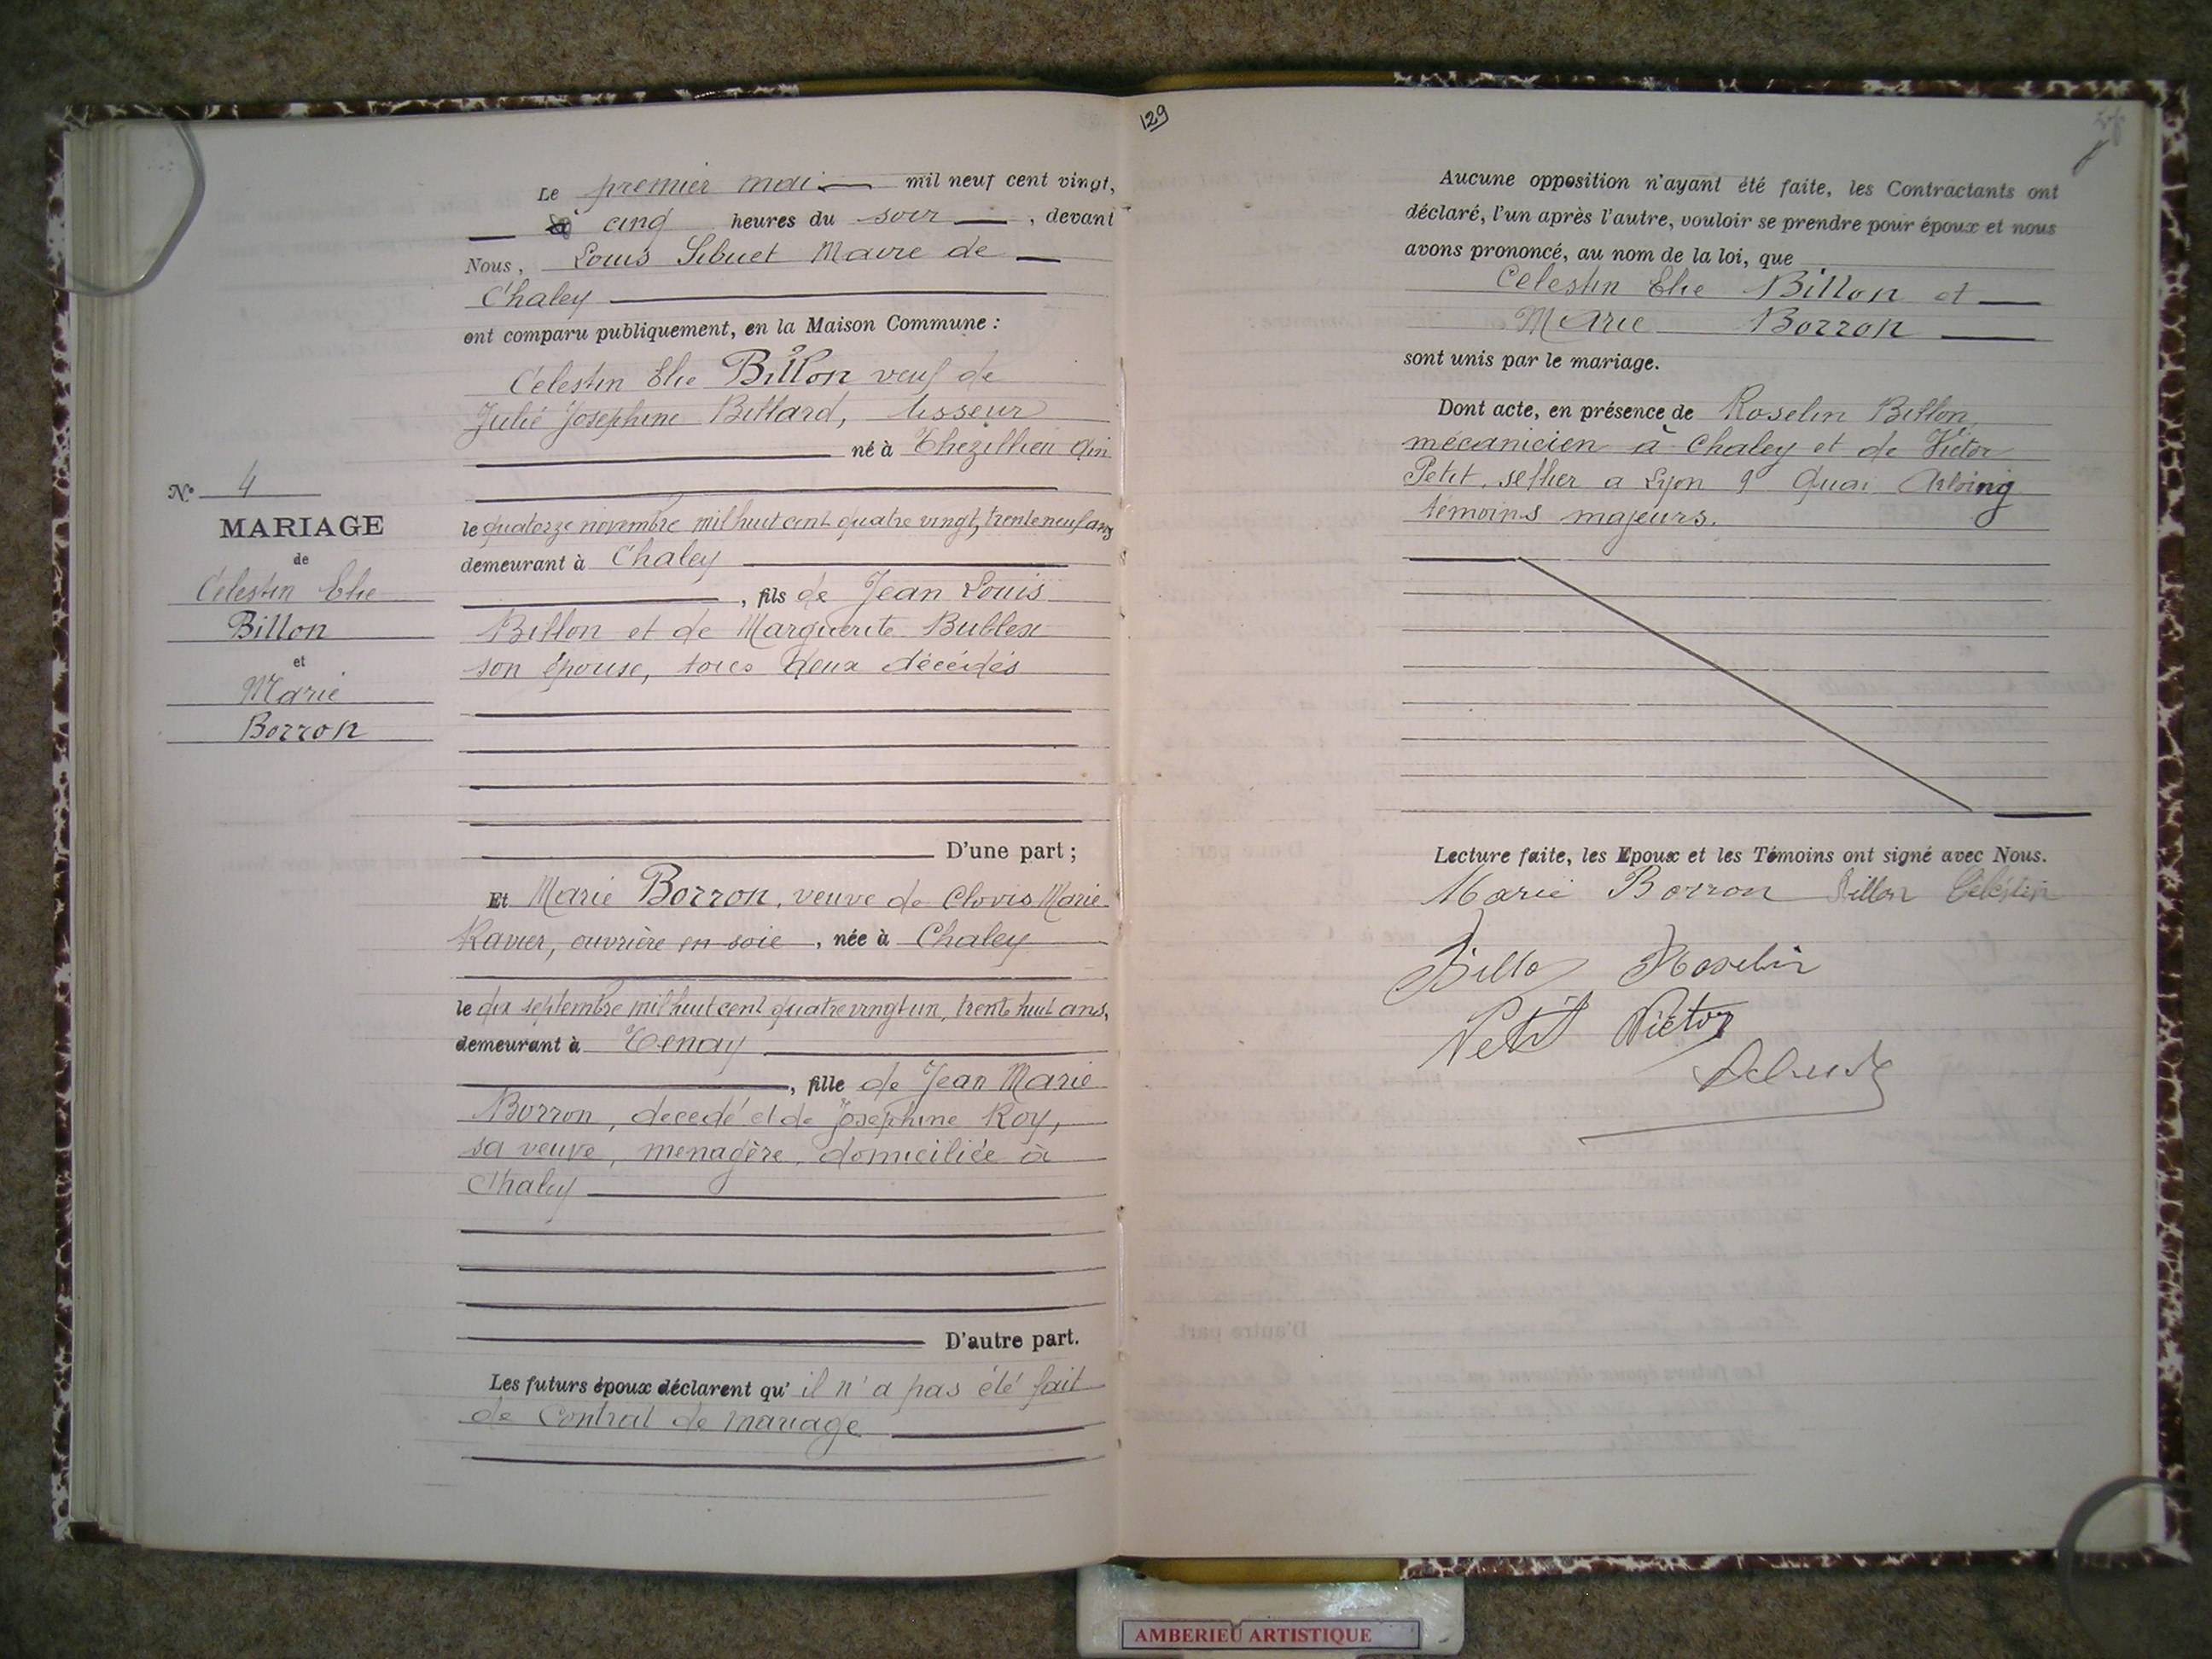 129
N° 4
MARIAGE
de
Célestin Elie
Billon
et
Marie
Borron
Le premier mai mil neuf cent vingt,
à cinq heures du soir, devant
Nous, Louis Sibuet Maire de
Chaley
ont comparu publiquement, en la Maison Commune :
Célestin Elie Billon veuf de
Julie Josephine Billard, tisseur
né à Thezillieu Ain
le quatorze novembre mil huit cent quatre vingt, trente neuf ans
demeurant à Chaley
, fils de Jean Louis
Billon et de Marguerite Bublex
son épouse, tous deux décédés
D'une part ;
Et Marie Borron, veuve de Clovis Marie
Ravier, ouvrière en soie, née à Chaley
le dix septembre mil huit cent quatre vingt un, trente huit ans,
demeurant à Tenay
, fille de Jean Marie
Borron, decedé et de Josephine Roy,
sa veuve, menagère, domiciliée à
Chaley
D'autre part.
Les futurs époux déclarent qu' il n'a pas été fait
de Contrat de mariage
Aucune opposition n'ayant été faite, les Contractants ont
déclaré, l'un après l'autre, vouloir se prendre pour époux et nous
avons prononcé, au nom de la loi, que
Celestin Elie Billon et
Marie Borron
sont unis par le mariage.
Dont acte, en présence de Roselin Billon,
mécanicien à Chaley et de Victor
Petit, sellier a Lyon 9 Quai Arloing
témoins majeurs.
Lecture faite, les Epoux et les Témoins ont signé avec Nous.
Marie Borron Billon Célestin
Billon Roselin
Petit Victor
Sibuet
AMBERIEU ARTISTIQUE